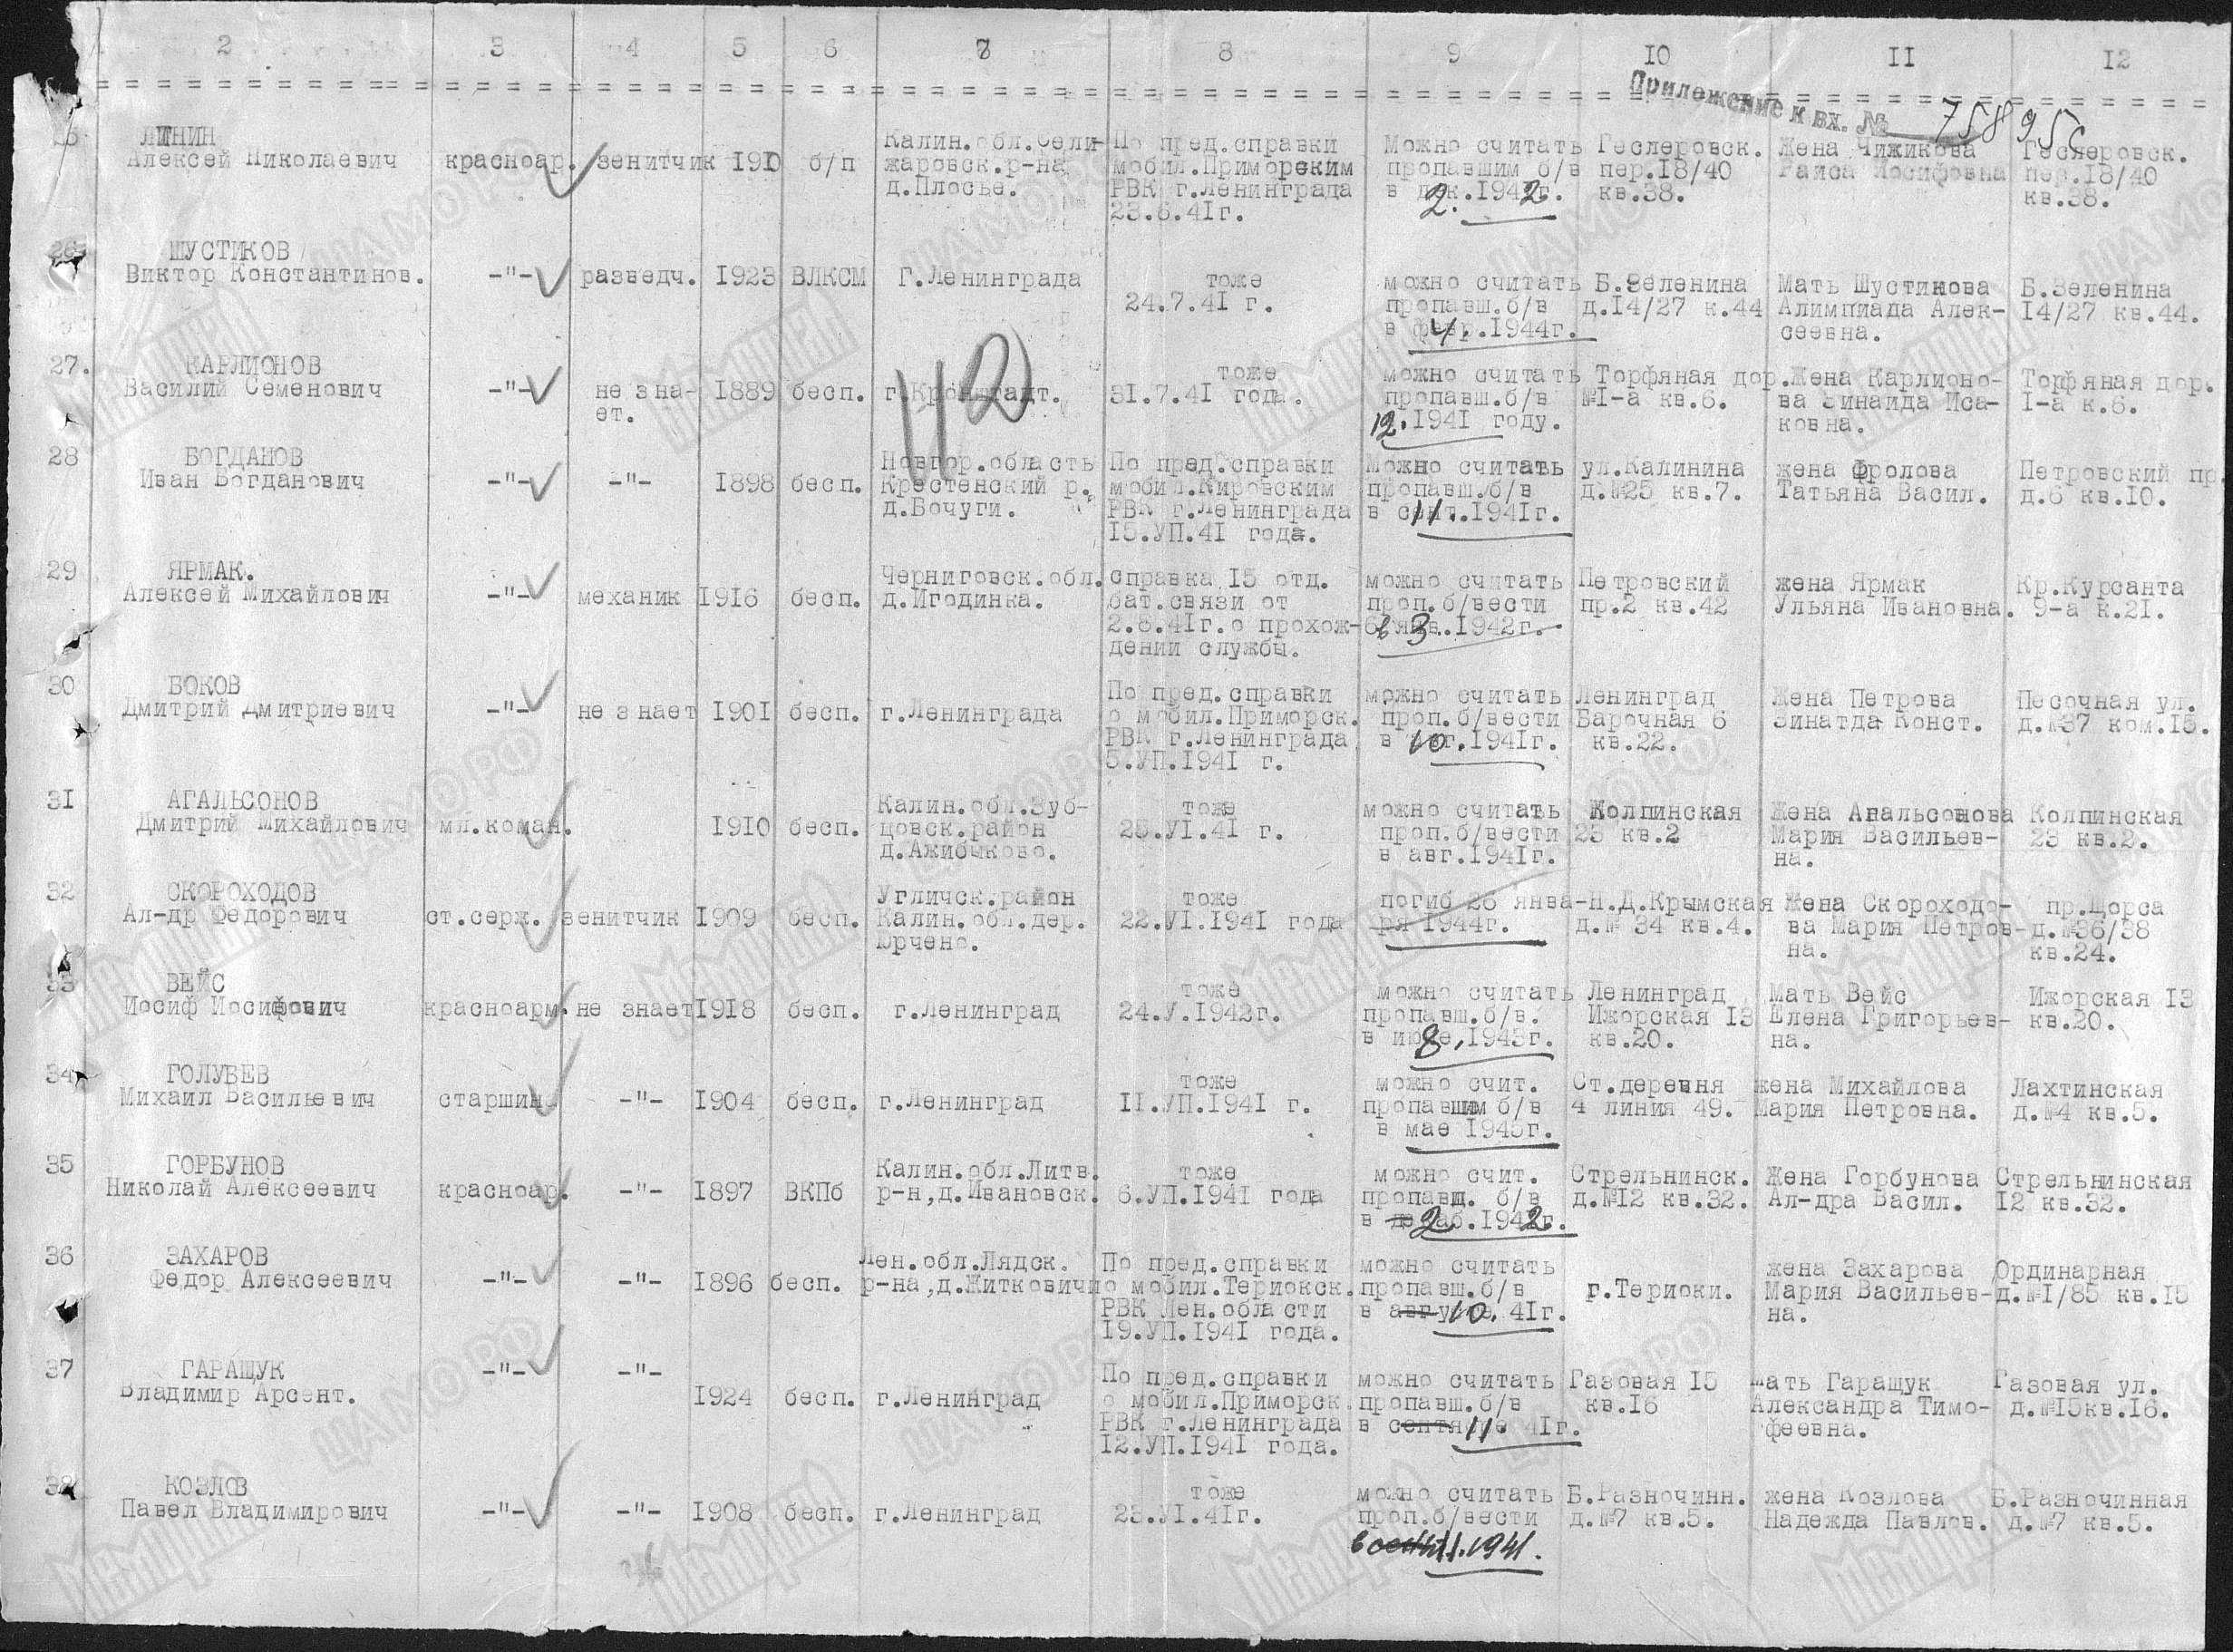 2 3 4 5 6 7 8 9 10 11 12
Приложение к вх. № 75895с
ЛИТНИН Калин.обл.Сели- По пред.справки Можно считать Геслеровск. Жена Чижикова Геслеровск.
Алексей Николаевич красноар. зенитчик 1910 б/п жаровск.р-на мобил.Приморским пропавшим б/в пер.18/40 Раиса Иосифовна пер.18/40
д.Плосье. РВК г.Ленинграда в 2. 1942г. кв.38. кв.38.
23.6.41г.
26 ШУСТИКОВ
Виктор Константинов. -"- разведч. 1923 ВЛКСМ Г.Ленинграда тоже можно считать Б.Зеленина Мать Шустикова Б.Зеленина
24.7.41 г. пропавш.б/в д.14/27 к.44 Алимпиада Алек- 14/27 кв.44.
в февр.1944г. сеевна.
112
27. КАРЛИОНОВ тоже можно считать Торфяная дор. Жена Карлионо- Торфяная дор.
Василий Семенович -"- не зна- 1889 бесп. г.Кронштадт. 31.7.41 года. пропавш.б/в №1-а кв.6. ва Зинаида Иса- 1-а к.6.
ет. 12.1941 году. ковна.
28 БОГДАНОВ Новгор.область По пред.справки Можно считать ул.Калинина жена Фролова Петровский пр.
Иван Богданович -"- -"- 1898 бесп. Крестенский р. мобил.Кировским пропавш.б/в д.№25 кв.7. Татьяна Васил. д.6 кв.10.
д.Бочуги. РВК г.Ленинграда в 11.1941г.
15.УП.41 года.
29 ЯРМАК. Черниговск.обл. справка 15 отд. можно считать Петровский жена Ярмак Кр.Курсанта
Алексей Михайлович -"- механик 1916 бесп. д.Игодинка. бат.связи от проп.б/вести пр.2 кв.42 Ульяна Ивановна. 9-а к.21.
2.8.41г.о прохож- в 3.1942г.
дении службы.
30 БОКОВ По пред.справки можно считать Ленинград Жена Петрова Песочная ул.
Дмитрий Дмитриевич -"- не знает 1901 бесп. г.Ленинграда о мобил.Приморск. проп.б/вести Барочная 6 Зинатда Конст. д.№37 ком.15.
РВК г.Ленинграда в 10.1941г. кв.22.
5.УП.1941 г.
31 АГАЛЬСОНОВ Калин.обл.Зуб- тоже можно считать Колпинская Жена Агальсонова Колпинская
Дмитрий Михайлович мл.коман. 1910 бесп. цовск.район 25.УІ.41 г. проп.б/вести 23 кв.2 Мария Васильев- 23 кв.2.
д.Ажибыково. в авг.1941г. на.
32 СКОРОХОДОВ Угличск.район тоже погиб 26 янва- Н.Д.Крымская Жена Скороходо- пр.Щорса
Ал-др Федорович ст.серж. зенитчик 1909 бесп. Калин.обл.дер. 22.УІ.1941 года ря 1944г. д.№ 34 кв.4. ва Мария Петров- д.№36/38
Юрчено. на. кв.24.
33 ВЕЙС тоже можно считать Ленинград Мать Вейс Ижорская 13
Иосиф Иосифович красноарм. не знает 1918 бесп. г.Ленинград 24.У.1942г. пропавш.б/в. Ижорская 13 Елена Григорьев- кв.20.
в 8,1943г. кв.20. на.
34 ГОЛУБЕВ тоже можно счит. Ст.деревня жена Михайлова Лахтинская
Михаил Васильевич старшин. -"- 1904 бесп. г.Ленинград 11.УП.1941 г. пропавшим б/в 4 линия 49. Мария Петровна. д.№4 кв.5.
в мае 1945г.
35 ГОРБУНОВ Калин.обл.Литв. тоже можно счит. Стрельнинск. Жена Горбунова Стрельнинская
Николай Алексеевич красноар. -"- 1897 ВКПб р-н,д.Ивановск. 6.УП.1941 года пропавш. б/в д.№12 кв.32. Ал-дра Васил. 12 кв.32.
в 2 1942г.
36 ЗАХАРОВ Лен.обл.Лядск. По пред.справки можно считать жена Захарова Ординарная
Федор Алексеевич -"- -"- 1896 бесп. р-на,д.Житковичи о мобил.Териокск. пропавш.б/в г.Териоки. Мария Васильев- д.№1/85 кв.15
РВК Лен.области в 10. 41г. на.
19.УП.1941 года.
37 ГАРАЩУК -"- -"- По пред.справки можно считать Газовая 15 мать Гаращук Газовая ул.
Владимир Арсент. 1924 бесп. г.Ленинград о мобил.Приморск. пропавш.б/в кв.16 Александра Тимо- д.№15кв.16.
РВК г.Ленинграда в 11. 41г. феевна.
12.УП.1941 года.
38 КОЗЛОВ тоже можно считать Б.Разночинн. жена Козлова Б.Разночинная
Павел Владимирович -"- -"- 1908 бесп. г.Ленинград 23.УІ.41г. проп.б/вести д.№7 кв.5. Надежда Павлов. д.№7 кв.5.
в 11.1941.